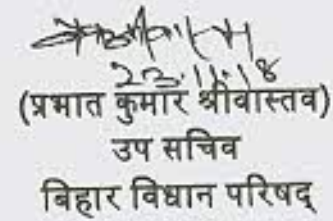 23.11.18
(प्रभात कुमार श्रीवास्तव)
उप सचिव
बिहार विधान परिषद्